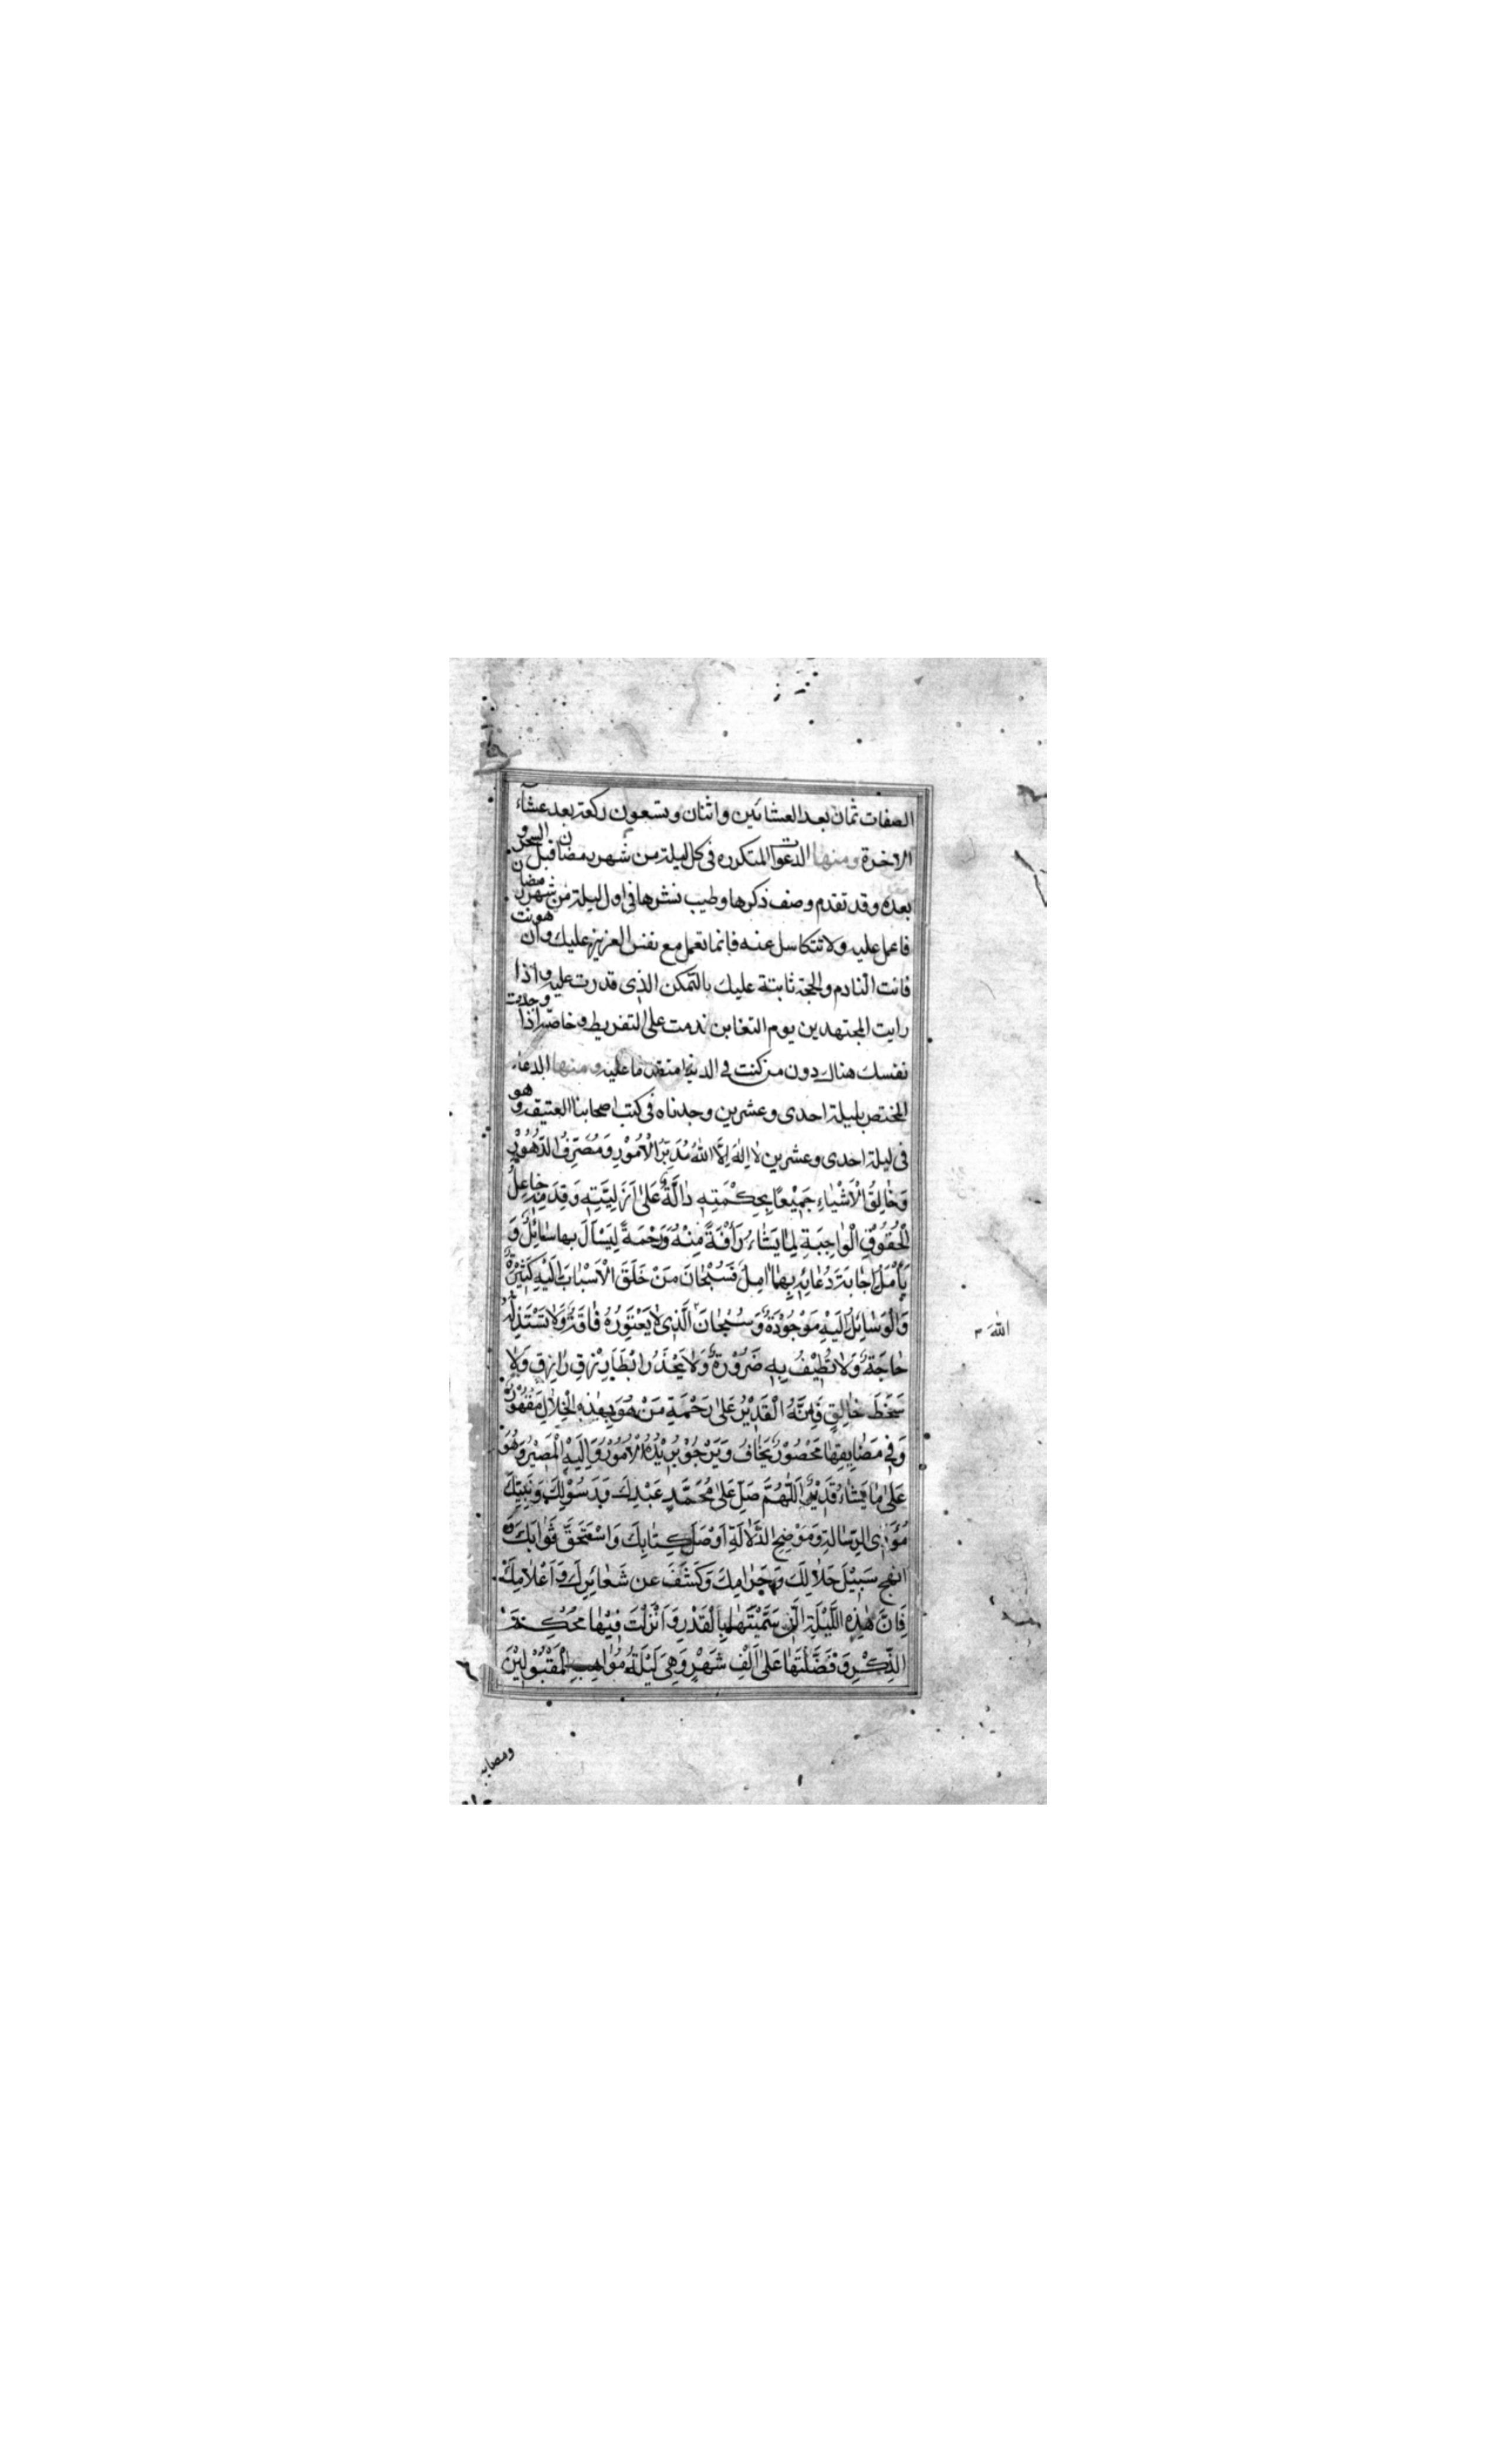 الصفات ثمان بعد العشائين واثنان وتسعون ركعة بعد عشاء
الاخرة ومنها الدعوات المتكرره فى كل ليلة من شهر رمضان قبل السحر و
بعده وقد تقدم وصف ذكرها وطيب نشرها فى اول ليلة من شهر رمضان
فاعمل عليه ولا تتكاسل عنه فانما تعمل مع نفس العزيزه عليك وان هونت
فانت النادم والحجة ثابتة عليك بالتمكن الذى قدرت عليه واذا
رايت المجتهدين يوم التغابن ندمت على التفريط وخاصة اذا وجدت
نفسك هناك دون من كنت فى الدنيا متقدما عليه ومنها الدعاء
المختص بليلة احدى وعشرين وجدناه فى كتب اصحابنا العتيقة وهو
فى ليلة احدى وعشرين لا اِلهَ اِلَّا اللهُ مُدَبِّرُ الْاُمُوْرِ وَمُصَرِّفُ الدُّهُوْرِ
وَخَالِقُ الْاَشْيَاءِ جَمِيْعًا بِحِكْمَتِهِ دَالَّةً عَلى اَزَلِيَّتِهِ وَقِدَمِهِ جَاعِلُ
الْحُقُوْقِ الْوَاجِبَةِ لِمَا يَشَاءُ رَأْفَةً مِنْهُ وَرَحْمَةً لِيَسْاَلَ بِهَا سَائِلٌ وَ
يَأْمُلَ اِجَابَةَ دُعَائِهِ بِهَا امِلٌ فَسُبْحَانَ مَنْ خَلَقَ الْاَسْبَابُ اِلَيْهِ كَثِيْرَةٌ
وَالْوَسَائِلُ اِلَيْهِ مَوْجُوْدَةٌ وَسُبْحَانَ الَّذِى لَا يَعْتَوِرُهُ فَاقَةٌ وَلَا تَسْتَذِلُّهُ
حَاجَةٌ وَلَا تُطِيْفُ بِهِ ضَرُوْرَةٌ وَلَا يَحْذَرُ اِبْطَاءَ رِزْقِ رَازِقٍ وَلَا
سَخَطَ خَالِقٍ فَاِنَّهُ الْقَدِيْرُ عَلى رَحْمَةِ مَنْ هُوَ بِهذِهِ الْخِلَالِ مَقْهُوْرٌ
وَفِى مَضَايِقِهَا مَحْصُوْرٌ يَخَافُ وَيَرْجُوْ مَنْ بِيَدِهِ الْاُمُوْرُ وَاِلَيْهِ الْمَصِيْرُ وَهُوَ
عَلى مَا يَشَاءُ قَدِيْرٌ اَللّهُمَّ صَلِّ عَلى مُحَمَّدٍ عَبْدِكَ وَرَسُوْلِكَ وَنَبِيِّكَ
مُؤَدِّى الرِّسَالَةِ وَمَوْضِحِ الدَّلَالَةِ اَوْصَلَ كِتَابِكَ وَاسْتَحَقَّ ثَوَابَكَ وَ
انهج سَبِيْلَ حَلَالِكَ وَحَرَامِكَ وَكَشَفَ عَنْ شَعَائِرِكَ وَاَعْلَامِكَ
فَاِنَّ هذِهِ اللَّيْلَةِ الَّتِى سَمَّيْتَهَا بِالْقَدْرِ وَاَنْزَلْتَ فِيْهَا مُحْكَمَ
الذِّكْرِ وَفَضَّلْتَهَا عَلى اَلْفِ شَهْرٍ وَهِىَ لَيْلَةُ مَوَاهِبِ الْمَقْبُوْلِيْنَ
الله
ومصايب